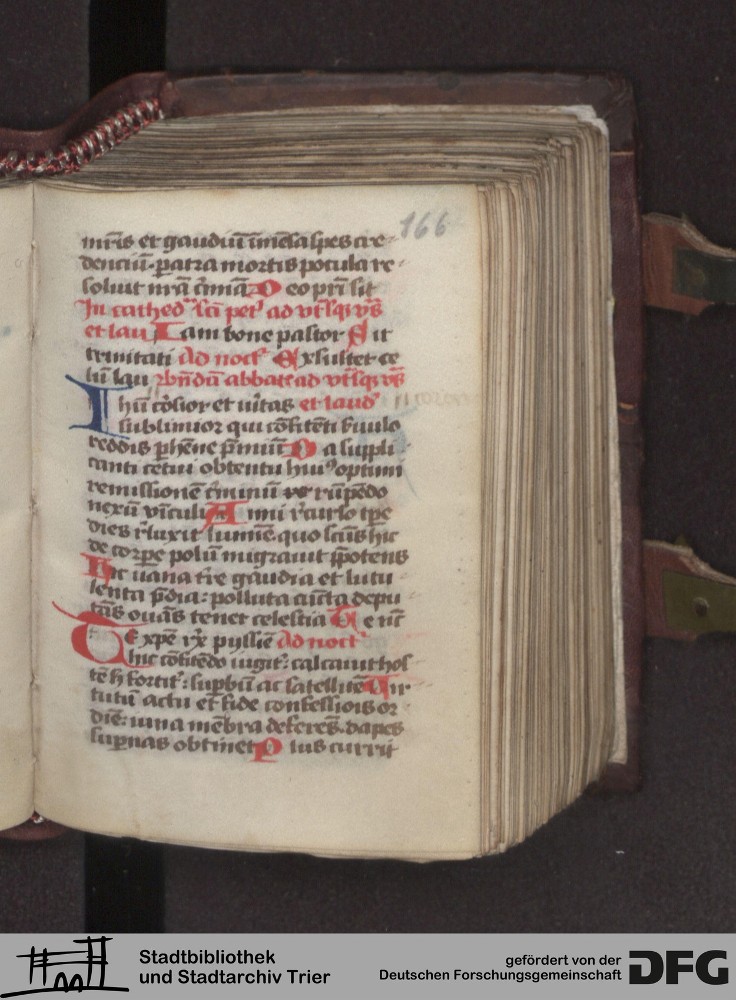 166
mr̄is et gaudiū īmēsa spes cre-
denciū. patra mortis pocula re-
soluit nrā cīmīa D eo pri sit
In cathed' sc̄i pet' ad vtrasq; vs̄
et lau Iam bone pastor Sit
trinitati Ad noct' Exsultet ce
lū lau bn̄dū abbate ad vtrasq; vs̄
Ihū cōlior et uītas et laud'
sublimior qui cōfitēti
reddis phēne p̄miū Da suppli
canti cetui obtentu hui9 optimi
remissionē cīminū rūpēdo
nexū vīculi Anni r̄curso tp̄e
dies r̄luxit lumīe. quo sc̄us hic
de corpe polū migrauit p̄potens
Hic uana tr̄e gaudia et lutu
lenta p̄dia: polluta cūcta depu
tās ouās tenet celestia Te nc̄
Te xp̄e rx̄ pijssīe Ad noct'
hic cōfitēdo iugit': calcauit hos
tē h̄ fortit': supbū ac satellitē Vir
tutū actu et fide confessiōis or
dīe: uana mēbra deferēs. dapes
supnas obtinet P ius currit
Stadtbibliothek
und Stadtarchiv Trier
gefördert von der
Deutschen Forschungsgemeinschaft
DFG